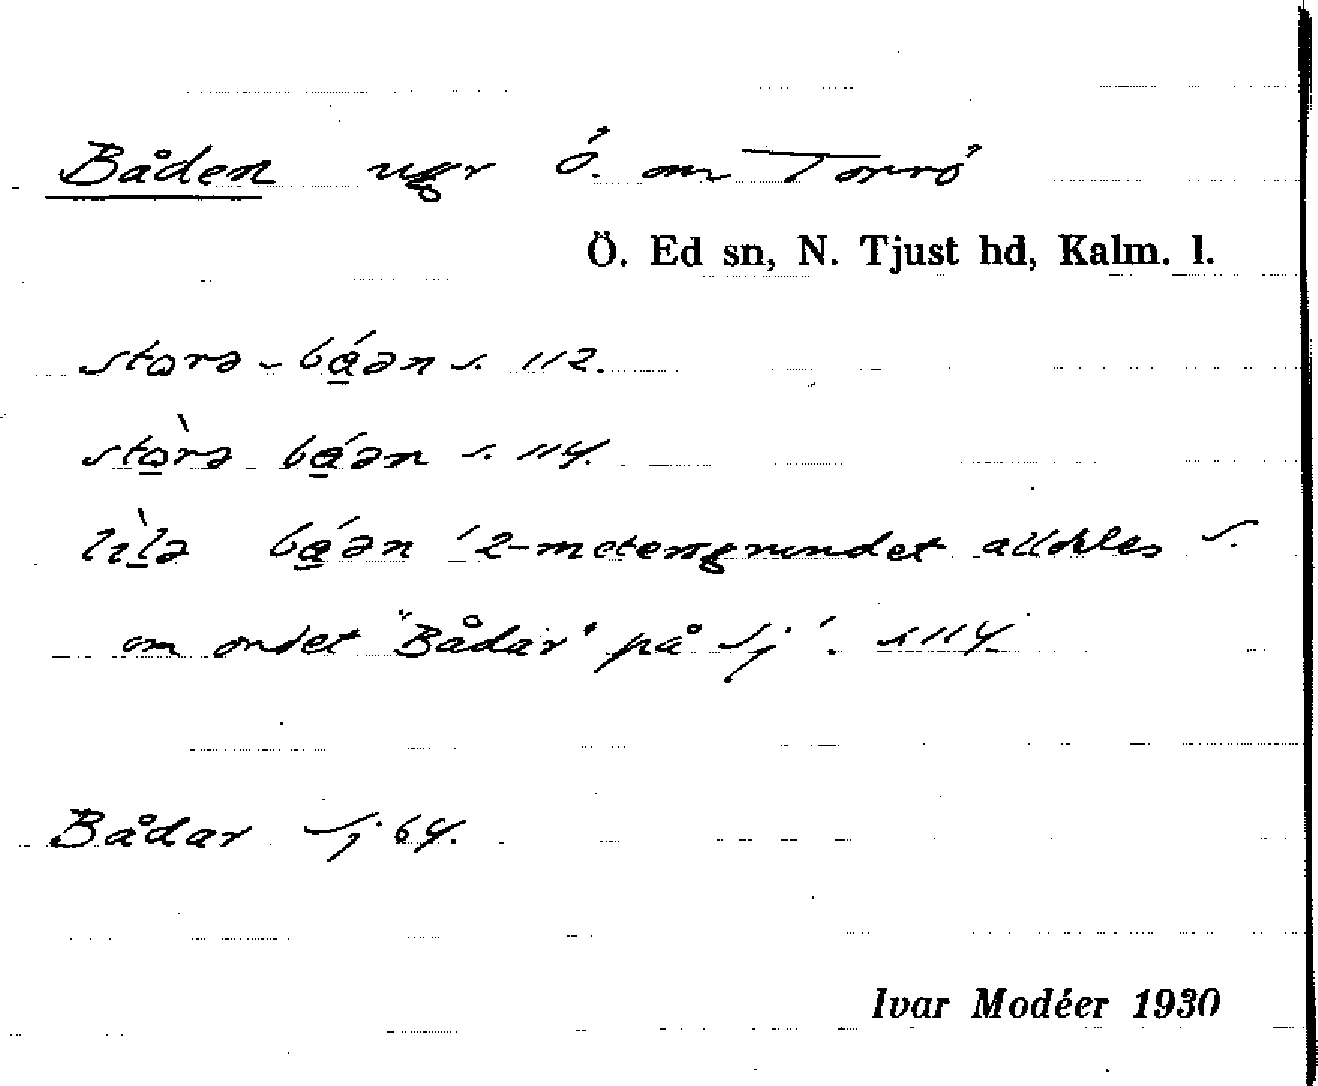 Båden ugr Ö. om Torrö
Ö. Ed sn, N. Tjust hd, Kalm. l.
storə-bá̱ən s. 112.
stò̱rə bá̱ən s. 114.
lı̱̀lə bá̱ən '2-metersgrundet alldeles S.
om ordet "Bådar" på Sj'. s 114.
Bådar Sj 64.
Ivar Modéer 1930